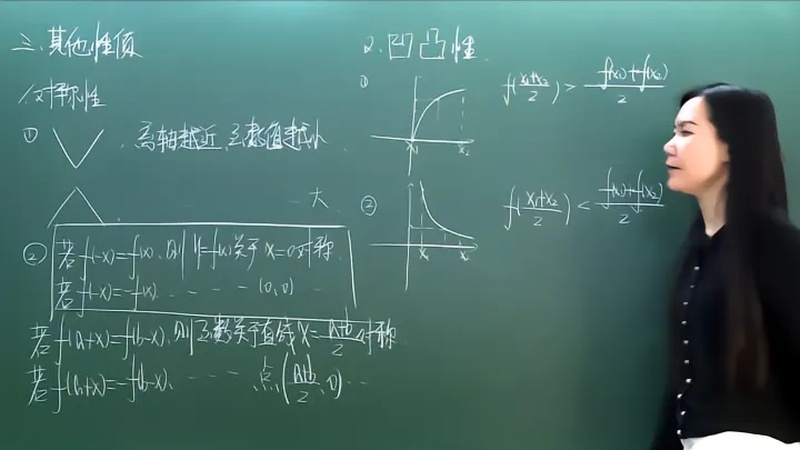 三.其他性质
1.对称性
① , 离轴越近,函数值越小
大
② 若f(-x)=f(x),则y=f(x)关于x=0对称
若f(-x)=-f(x). - - - - - (0,0)
若f(a+x)=f(b-x),则函数关于直线x=\frac{a+b}{2}对称
若f(a+x)=-f(b-x), - - - - 点(\frac{a+b}{2},0) - -
2.凹凸性
①
x₁ x₂
f(\frac{x₁+x₂}{2}) > \frac{f(x₁)+f(x₂)}{2}
②
x₁ x₂
f(\frac{x₁+x₂}{2}) < \frac{f(x₁)+f(x₂)}{2}